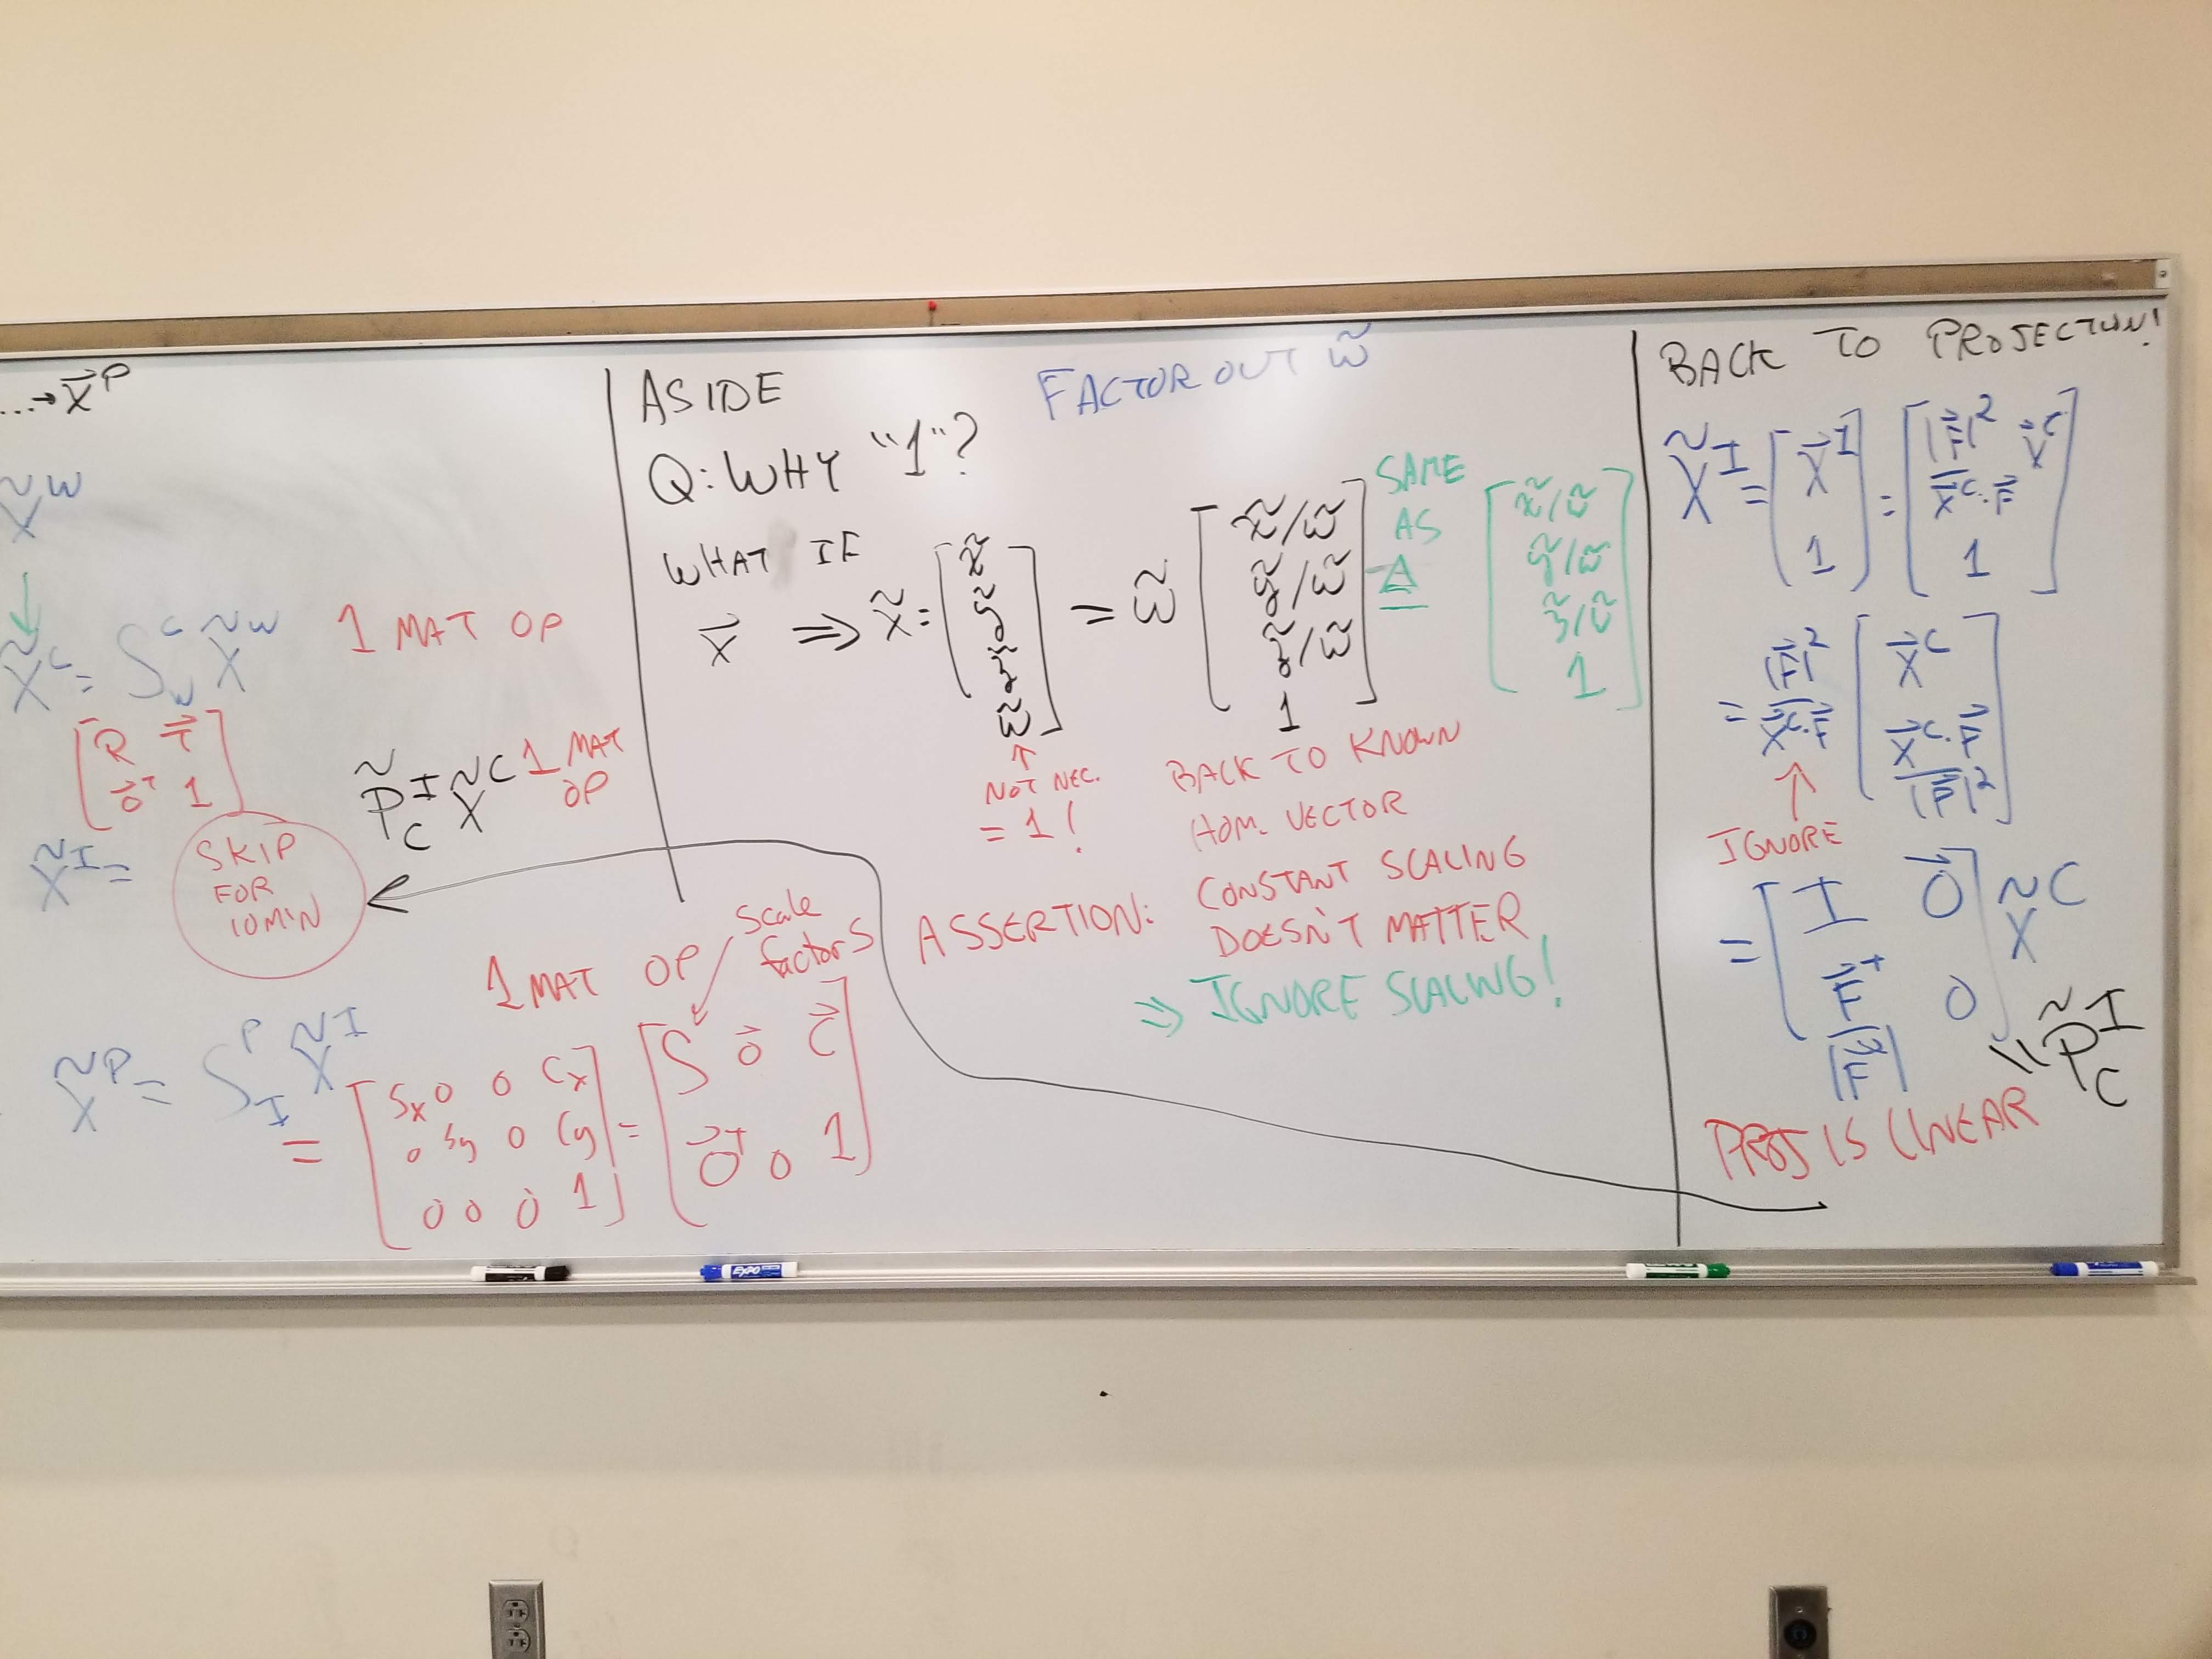 ...→ X⃗ᴾ
X̃ᵂ
X̃ᶜ = S_Wᶜ X̃ᵂ 1 MAT OP
[ R T⃗
0⃗ᵀ 1 ]
P̃_Cᴵ X̃ᶜ 1 MAT
OP
X̃ᴵ =
SKIP
FOR
10 MIN
1 MAT OP
Scale
factors
X̃ᴾ = S_Iᴾ X̃ᴵ
= [ Sx 0 0 Cx
0 Sy 0 Cy
0 0 0 1 ]
= [ S 0⃗ C⃗
0⃗ᵀ 0 1 ]
ASIDE
Q: WHY "1"?
FACTOR OUT w̃
WHAT IF
X⃗ ⇒ X̃ = [ x̃
ỹ
z̃
w̃ ]
= w̃ [ x̃/w̃
ỹ/w̃
z̃/w̃
1 ]
SAME
AS
A
[ x̃/w̃
ỹ/w̃
z̃/w̃
1 ]
↑
NOT NEC.
= 1!
BACK TO KNOWN
HOM. VECTOR
ASSERTION: CONSTANT SCALING
DOESN'T MATTER
⇒ IGNORE SCALING!
BACK TO PROJECTION!
X̃ᴵ = [ X⃗ᴵ
1 ]
= [ |F⃗|² / X⃗ᶜ·F⃗ X⃗ᶜ
1 ]
= |F⃗|² / X⃗ᶜ·F⃗ [ X⃗ᶜ
X⃗ᶜ·F⃗ / |F⃗|² ]
↑
IGNORE
= [ I 0⃗
F⃗ᵀ / |F⃗|² 0 ] X̃ᶜ
" P̃_Cᴵ
PROJ IS LINEAR
EXPO